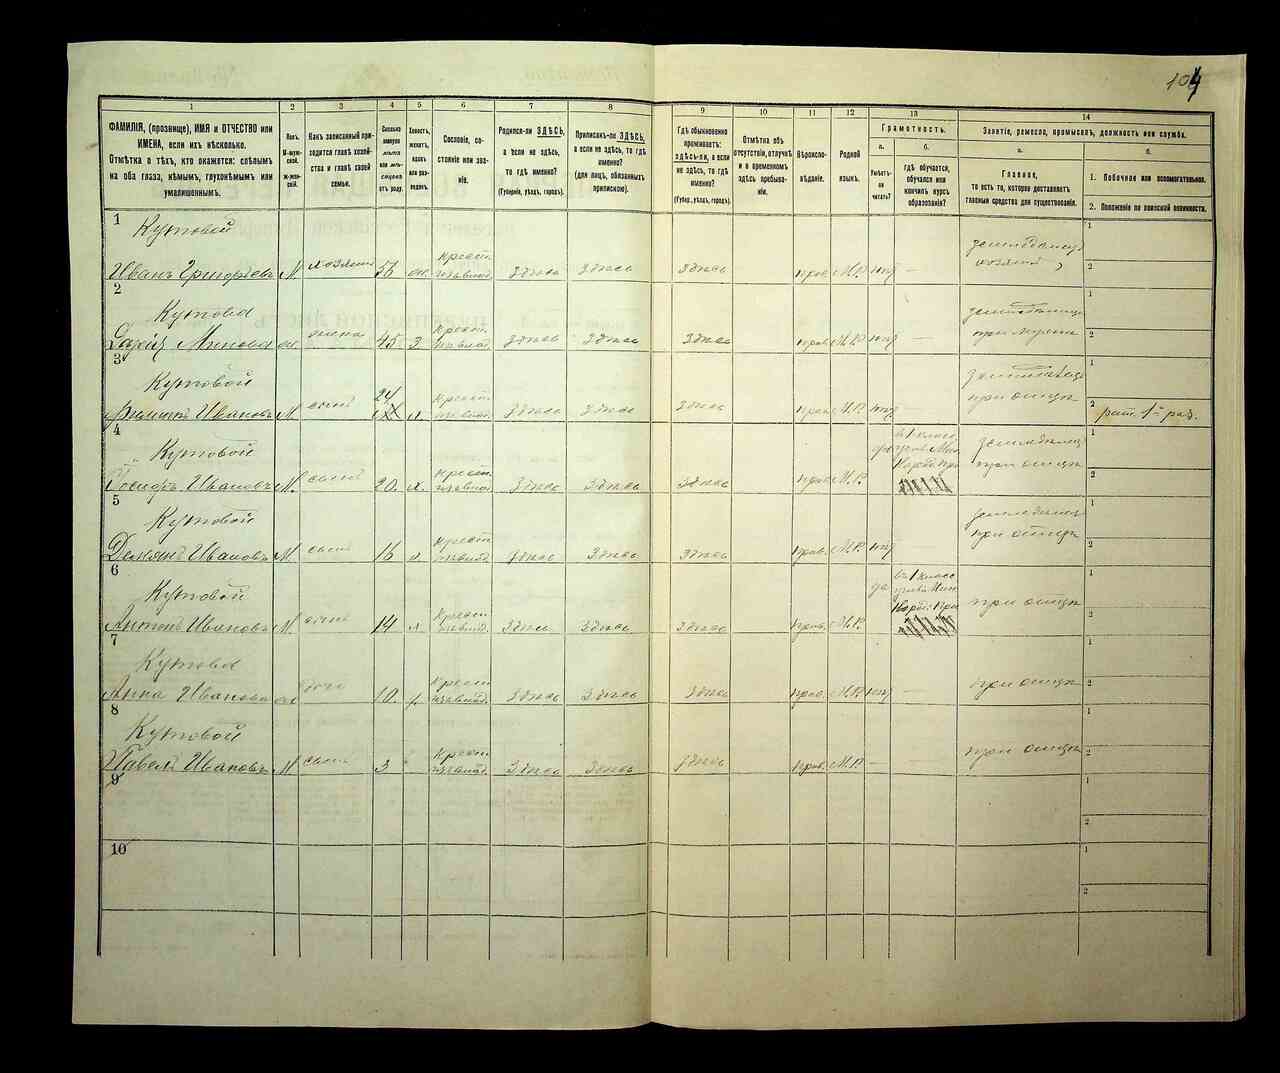 104
1
2
3
4
5
6
7
8
9
10
11
12
13
14
ФАМИЛІЯ, (прозвище), ИМЯ и ОТЧЕСТВО или
ИМЕНА, если ихъ нѣсколько.
Отмѣтка о тѣхъ, кто окажется: слѣпымъ
на оба глаза, нѣмымъ, глухонѣмымъ или
умалишеннымъ.
Полъ.
М-муж-
ской.
Ж-жен-
скій.
Какъ записанный при-
ходится главѣ хозяй-
ства и главѣ своей
семьи.
Сколько
минуло
лѣтъ
или мѣ-
сяцевъ
отъ роду.
Холостъ,
женатъ,
вдовъ
или раз-
веденъ.
Сословіе, со-
стояніе или зва-
ніе.
Родился-ли ЗДѢСЬ,
а если не здѣсь,
то гдѣ именно?
(Губернія, уѣздъ, городъ).
Приписанъ-ли ЗДѢСЬ,
а если не здѣсь, то гдѣ
именно?
(для лицъ, обязанныхъ
припискою).
Гдѣ обыкновенно
проживаетъ:
здѣсь-ли, а если
не здѣсь, то гдѣ
именно?
(Губер., уѣздъ, городъ).
Отмѣтка объ
отсутствіи, отлучкѣ
и о временномъ
здѣсь пребыва-
ніи.
Вѣроиспо-
вѣданіе.
Родной
языкъ.
Грамотность.
а.
Умѣетъ-
ли
читать?
б.
гдѣ обучается,
обучался или
кончилъ курсъ
образованія?
Занятіе, ремесло, промыселъ, должность или служба.
а.
Главное,
то есть то, которое доставляетъ
главныя средства для существованія.
б.
1. Побочное или вспомогательное.
2. Положеніе по воинской повинности.
1
Кутовой
Иванъ Григорьевъ М хозяинъ 56 ж. крест. здѣсь здѣсь здѣсь прав. М.Р. нѣт —
1
2
2
Кутова
Дарія Минова ж. жена 45 з крест. здѣсь здѣсь здѣсь прав. М.Р. нѣт —
при мужѣ
1
2
3
Кутовой
Филиппъ Ивановъ М сынъ 24 х крест. здѣсь здѣсь здѣсь прав. М.Р. нѣт
при отцѣ
1
2 рат. 1 раз.
4
Кутовой
Іосифъ Ивановъ М. сынъ 20. х. крест. здѣсь здѣсь здѣсь прав. М.Р.
при отцѣ
1
2
5
Кутовой
Демьянъ Ивановъ М. сынъ 16 х крест. здѣсь здѣсь здѣсь прав. М.Р. нѣт
при отцѣ
1
2
6
Кутовой
Антонъ Ивановъ М. сынъ 14 х крест. здѣсь здѣсь здѣсь прав. М.Р. да въ 1 класс.
при отцѣ
1
2
7
Кутова
Анна Ивановна ж дочь 10. крест. здѣсь здѣсь здѣсь прав. М.Р. нѣт
при отцѣ
1
2
8
Кутовой
Павелъ Ивановъ М сынъ 3 крест. здѣсь здѣсь здѣсь прав. М.Р. —
при отцѣ
1
2
9
1
2
10
1
2